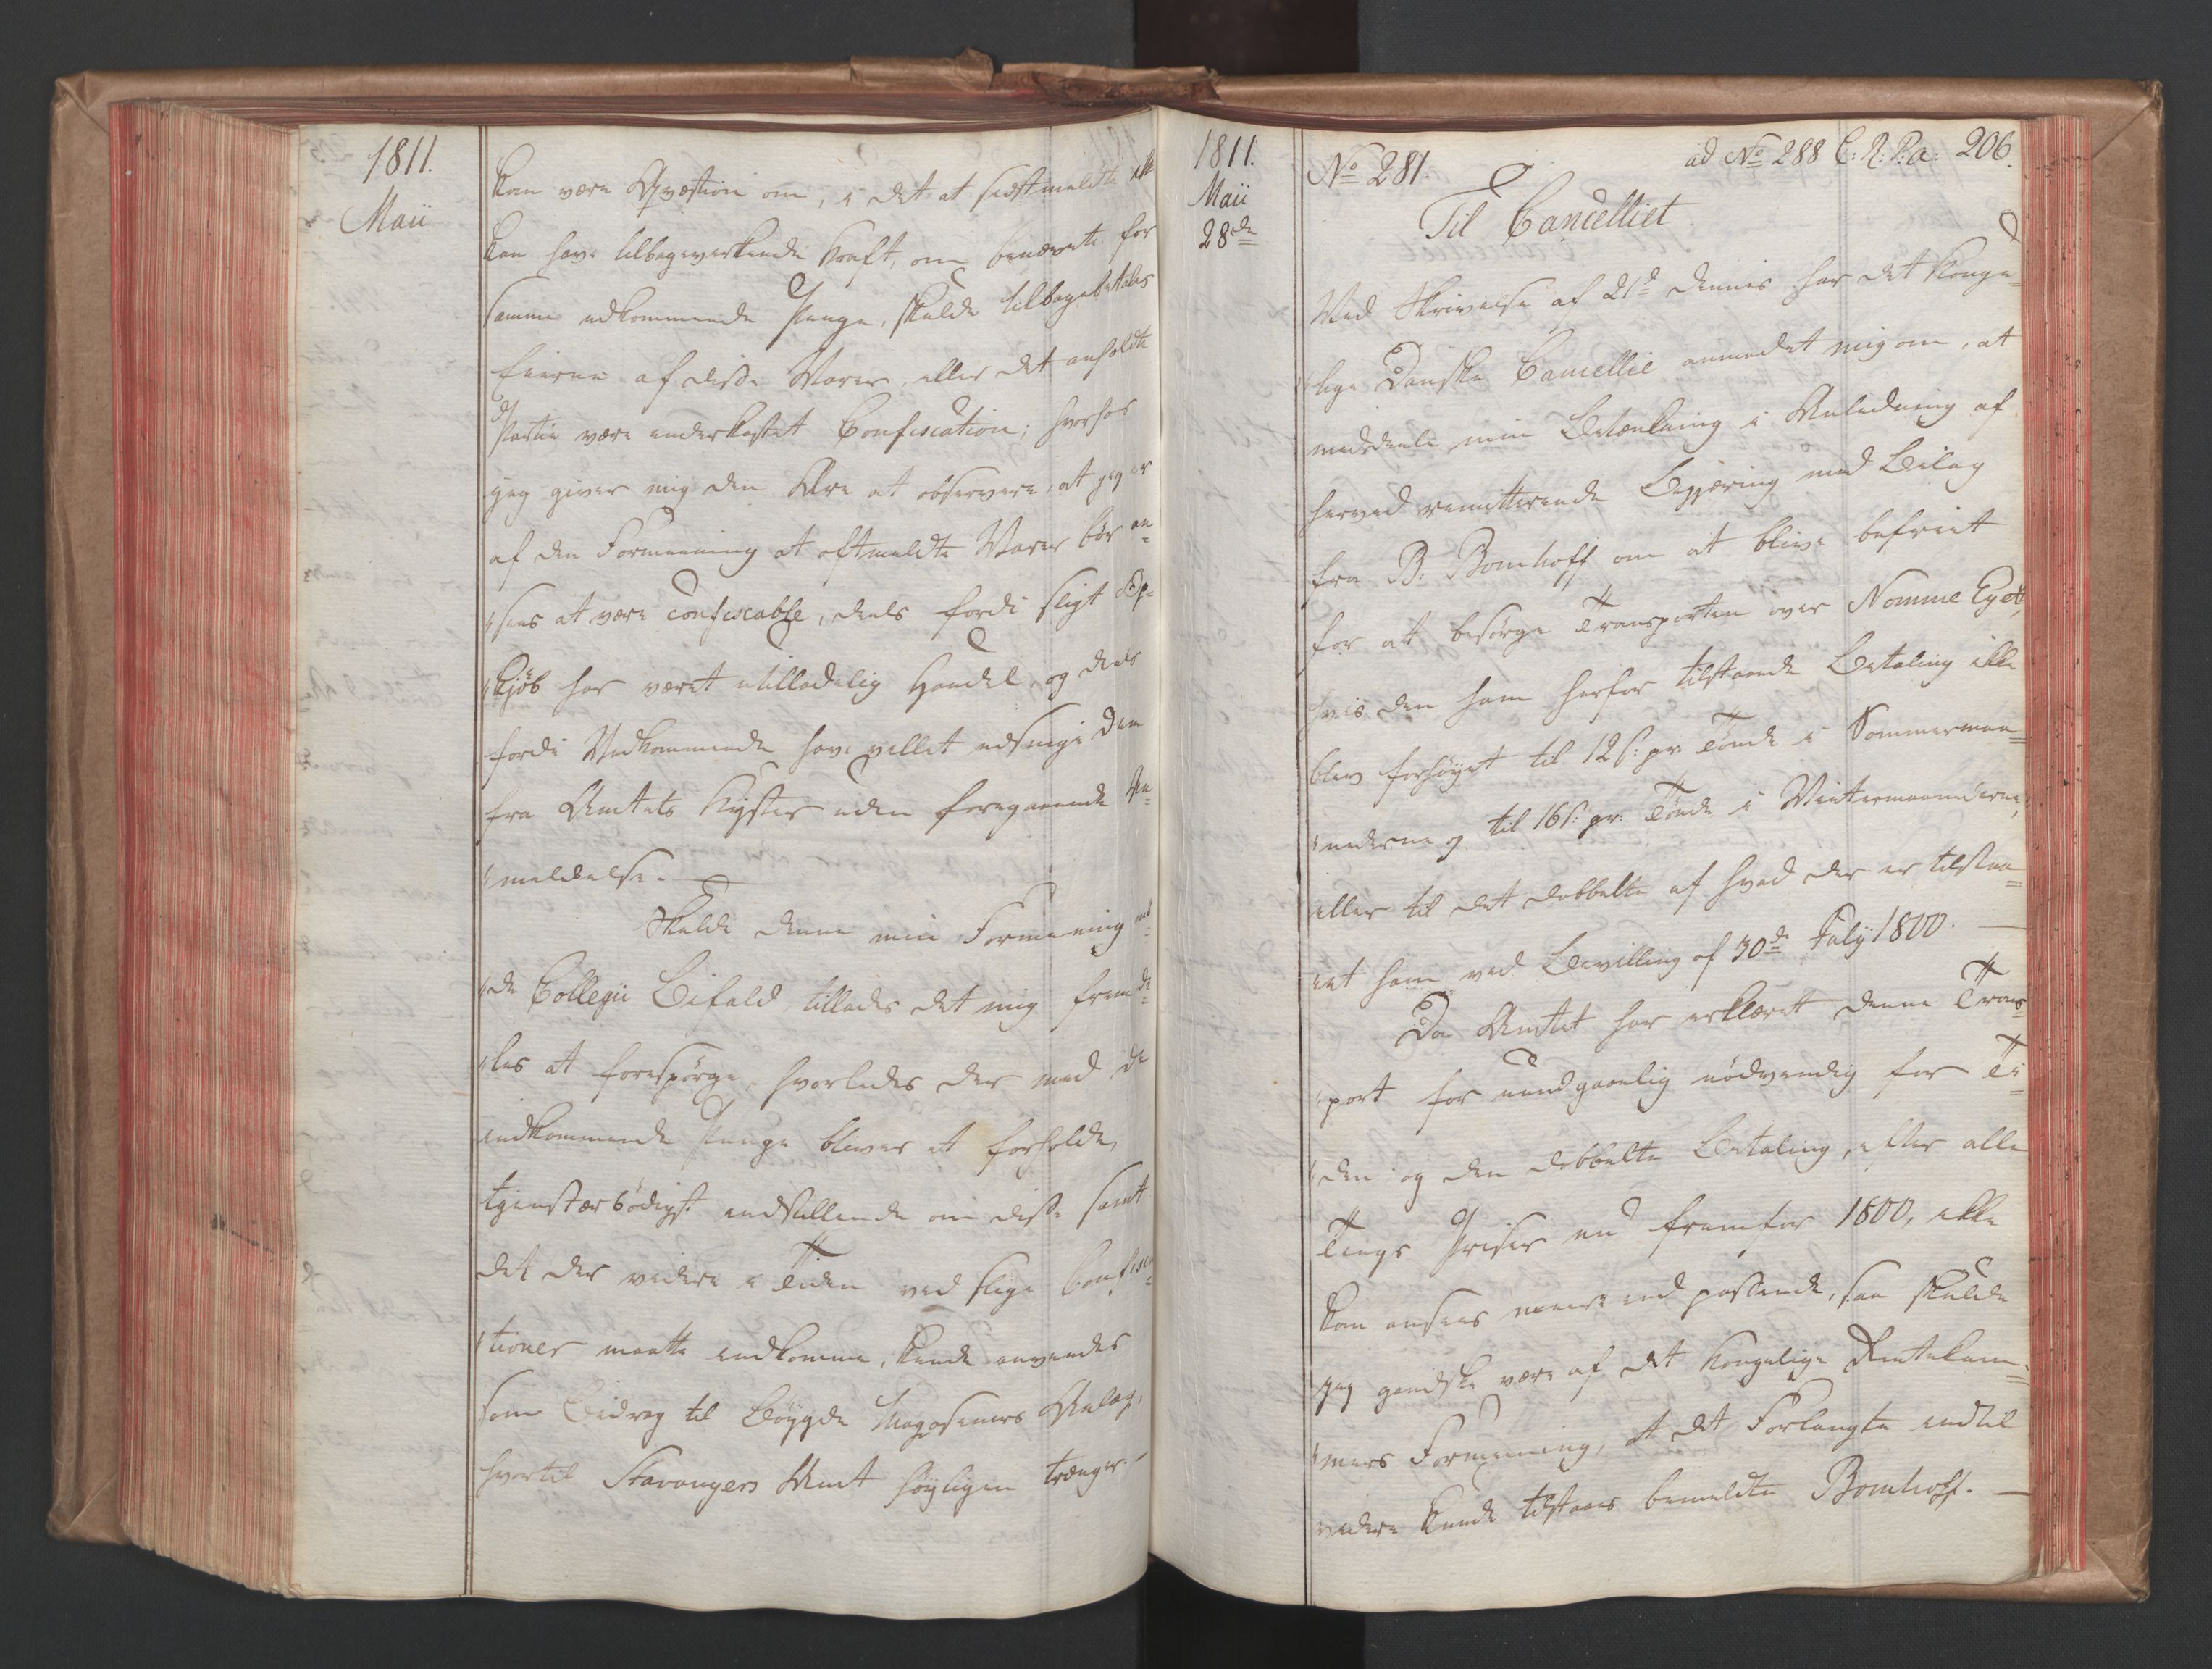 1811.
Maii
kan være Qvæstion om, i det at sidstmeldte ikke
kan have tilbagevirkende Kraft, om benævnte for
samme udkommende Penge, skulde tilbagebetales
Eierne af disse Varer, eller det anholdte
Partie være underkastet Confiscation; hvorhos
jeg giver mig den Ære at observere, at jeg er
af den Formening at oftmeldte Varer bør an-
sees at være confiscable, deels fordi sligt Op-
kjøb har været utilladelig Handel, og deels
fordi Vedkommende have villet udsnige dem
fra Amtets Kyster uden foregaaende An-
meldelse. —
Skulde denne min Formening
de Collegii Bifald, tillades det mig fremde-
les at forespørge, hvorledes der med de
indkommende Penge bliver at forholde,
tjenstærbødigst indstillende om disse samt
det der videre i Tiden ved slige Confisca-
tioner maatte indkomme, kunde anvendes
som Bidrag til Bøygde Magasiners Anlæg,
hvortil Stavangers Amt høyligen trænger. —
1811.
Maii
28de
No 281.
ad No 288 C: R: P: a: 206.
Til Cancelliet
Ved Skrivelse af 21d dennes har det Konge-
lige Danske Cancellie anmodet mig om, at
meddeele min Betænkning i Anledning af
herved remitterende Begjæring med Bilag
fra B: Bomhoff om at blive befriet
for at besørge Transporten over Nomme Eyet,
hvis den ham herfor tilstaaede Betaling ikke
blev forhøyet til 12 s: pr Tønde i Sommermaa-
nederne og til 16 s: pr: Tønde i Vintermaanederne,
eller til det dobbelte af hvad der er tilstaa-
et ham ved Bevilling af 30de July 1800. —
Da Amtet har erklæret denne Trans-
port for uundgaaelig nødvendig for Ti-
den og den dobbelte Betaling, efter alle
Tings Priser nu fremfor 1800, ikke
kan ansees meere end passende, saa skulde
jeg gandske være af det Kongelige Rentekam-
mers Formening, at det Forlangte indtil
videre kunde tilstaaes bemeldte Bomhoff. —